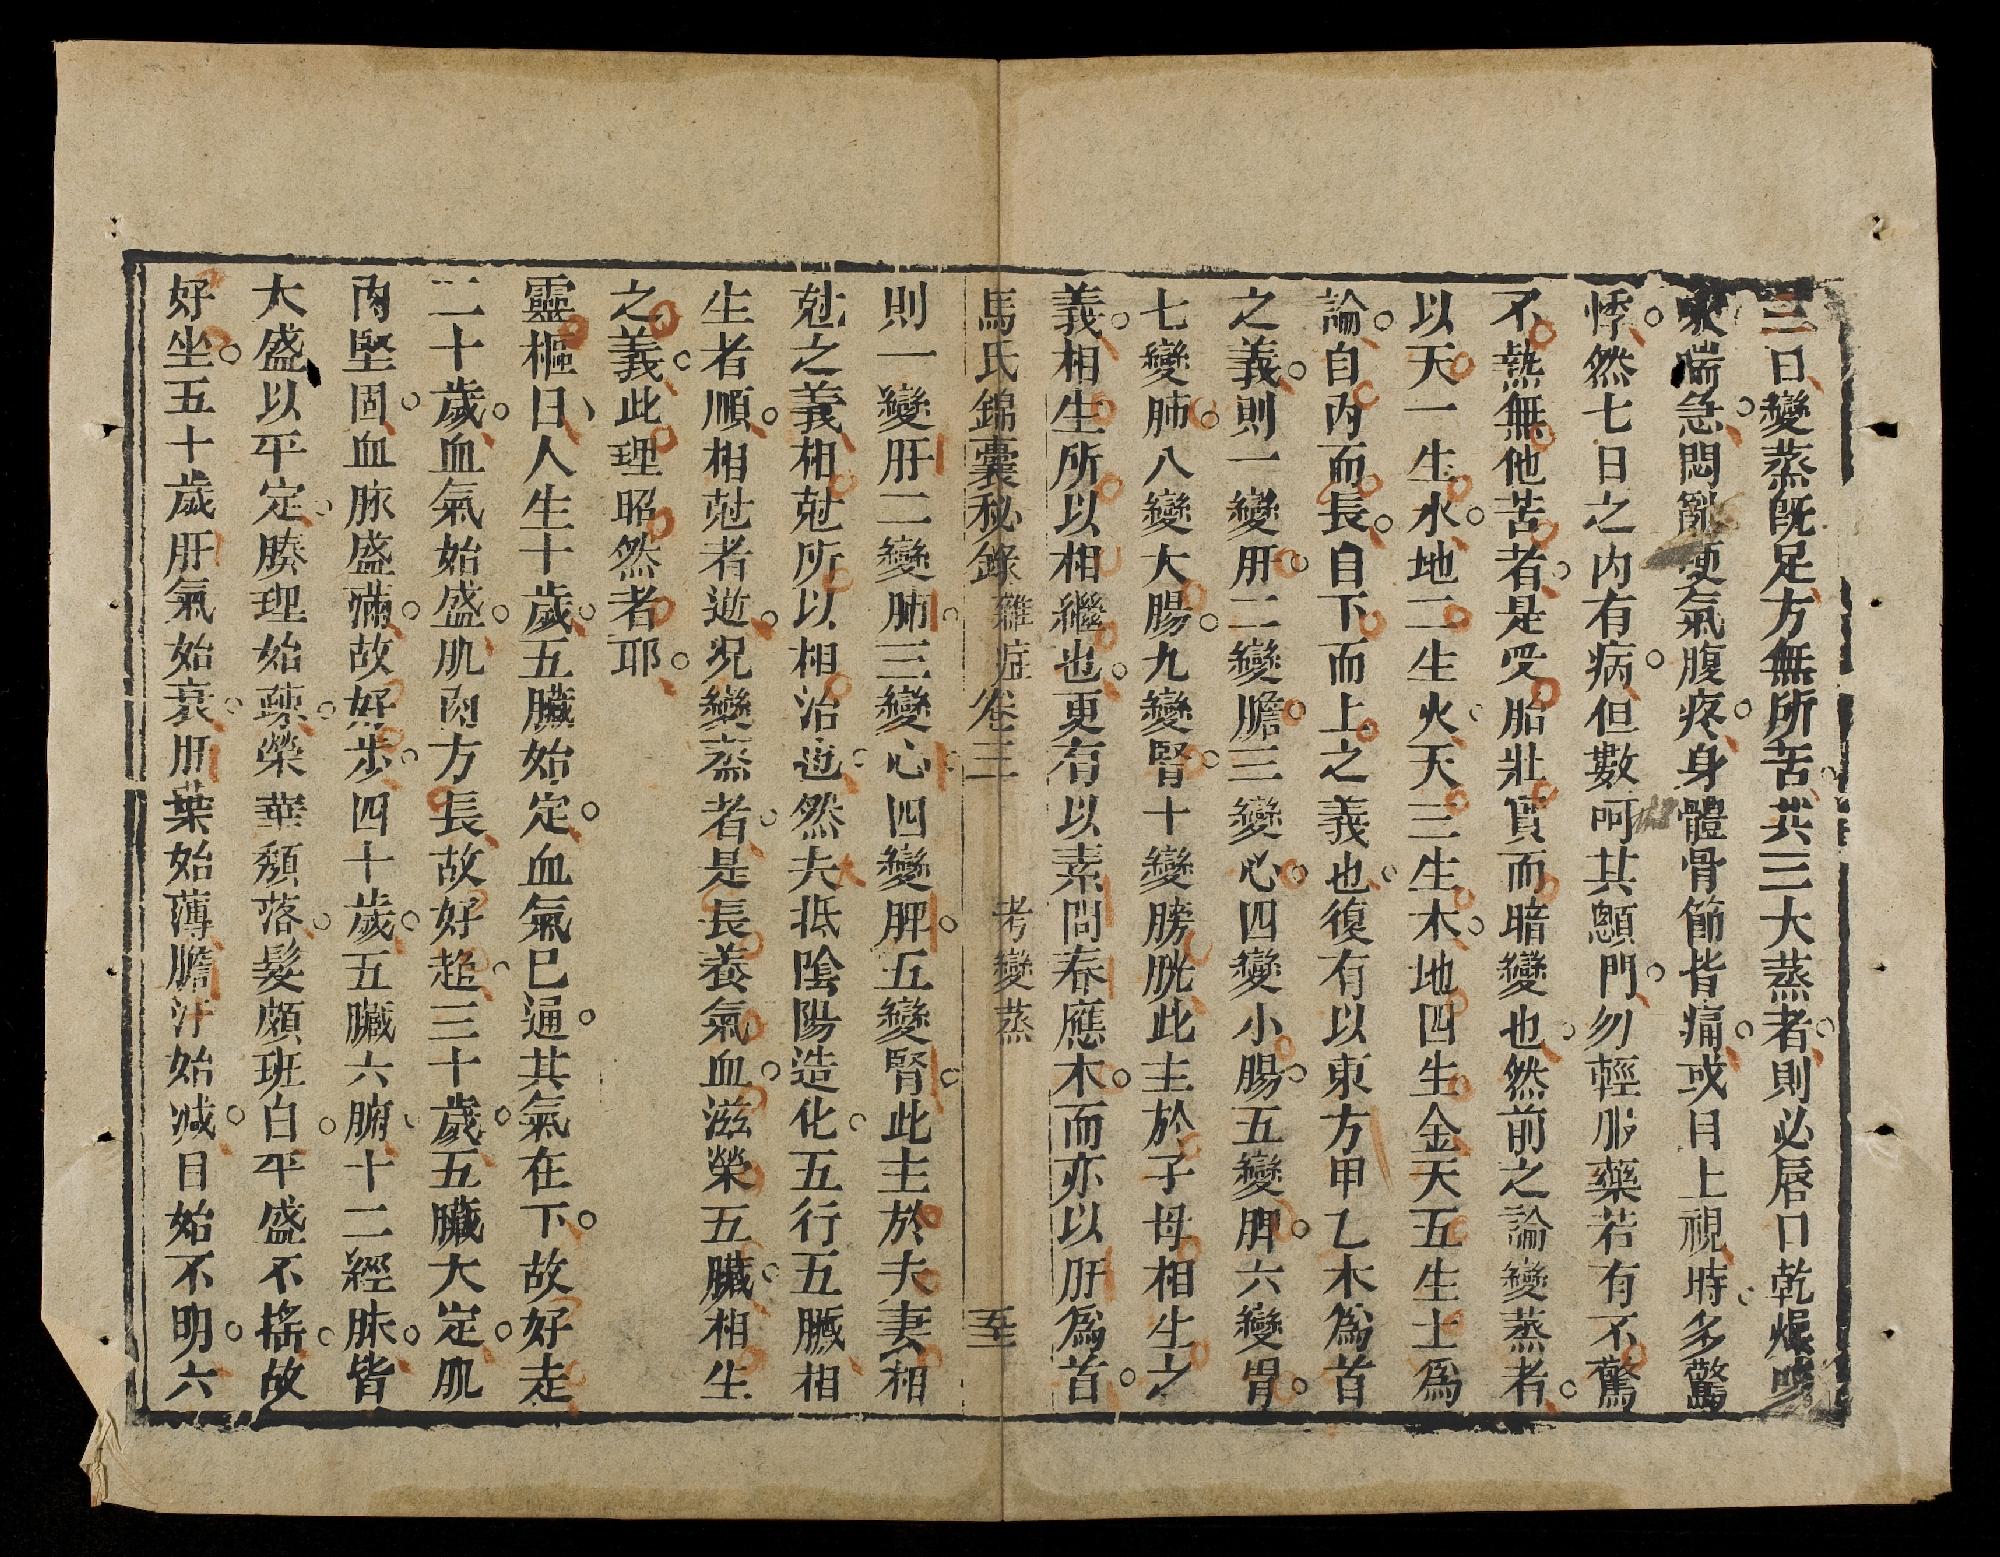 三日變蒸既足方無所苦共三大蒸者則必唇口乾燥咳
嗽喘急悶亂哽氣腹疼身體骨節皆痛或目上視時多驚
悸然七日之内有病但數呵其顖門勿輕服藥若有不驚
不熱無他苦者是受胎壯實而暗變也然前之論變蒸者
以天一生水地二生火天三生木地四生金天五生土爲
論自内而長自下而上之義也復有以東方甲乙木爲首
之義則一變肝二變膽三變心四變小腸五變脾六變胃
七變肺八變大腸九變腎十變膀胱此主於子母相生之
義相生所以相繼也更有以素問春應木而亦以肝爲首
馬氏錦囊秘錄 雜症 卷三 考變蒸 五
則一變肝二變肺三變心四變脾五變腎此主於夫妻相
尅之義相尅所以相治也然夫抵陰陽造化五行五臟相
生者順相尅者逆况變蒸者是長養氣血滋榮五臟相生
之義此理昭然者耶
靈樞曰人生十歲五臟始定血氣已通其氣在下故好走
二十歲血氣始盛肌肉方長故好趨三十歲五臟大定肌
肉堅固血脉盛滿故好步四十歲五臟六腑十二經脉皆
大盛以平定腠理始踈榮華頽落髮頗班白平盛不搖故
好坐五十歲肝氣始衰肝葉始薄膽汁始減目始不明六